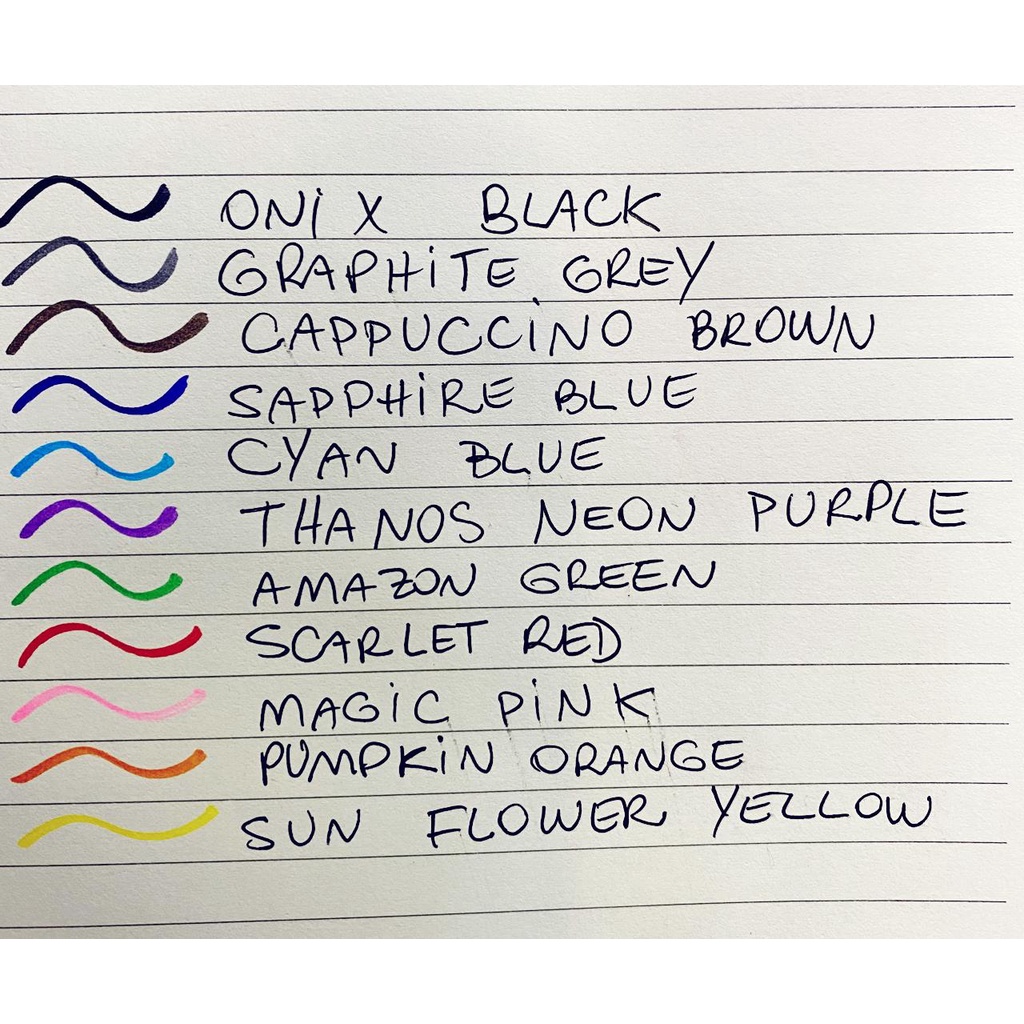 ONiX BLACK
GRAPHiTE GREY
CAPPUCCiNO BROWN
SAPPHiRE BLUE
CYAN BLUE
THANOS NEON PURPLE
AMAZON GREEN
SCARLET RED
MAGiC PiNK
PUMPKiN ORANGE
SUN FLOWER YELLOW